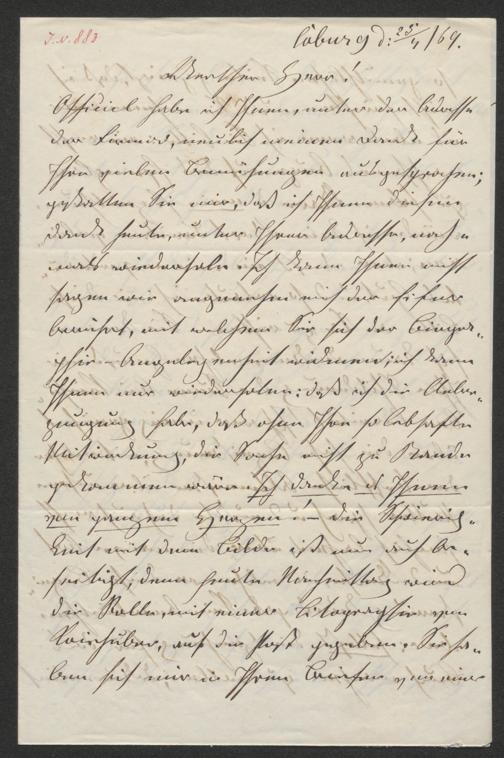 J.N. 883
Coburg d: 25/4 /69.
Werther Herr!
Officiel habe ich Ihnen, unter der Adresse
der Firma, neulich meinen Dank für
Ihre vielen Bemühungen ausgesprochen;
gestatten Sie mir, daß ich Ihnen diesen
Dank heute, unter Ihrer Adresse, noch-
mals wiederhole. Ich kann Ihnen nicht
sagen wie angenehm mich der Eifer
berührt, mit welchem Sie sich der Biogra-
phie-Angelegenheit widmen; ich kann
Ihnen nur wiederholen: daß ich die Ueber-
zeugung habe, daß ohne Ihre so lebhafte
Mitwirkung, die Sache nicht zu Stande
gekommen wäre. Ich danke es Ihnen
von ganzem Herzen! – Die Schwierig-
keit mit dem Bilde ist nun auch be-
seitigt, denn heute Nachmittag wird
die Rolle, mit einer Litographie von
Kriehuber, auf die Post gegeben. Sie ha-
ben sich mir in Ihren Briefen von einer